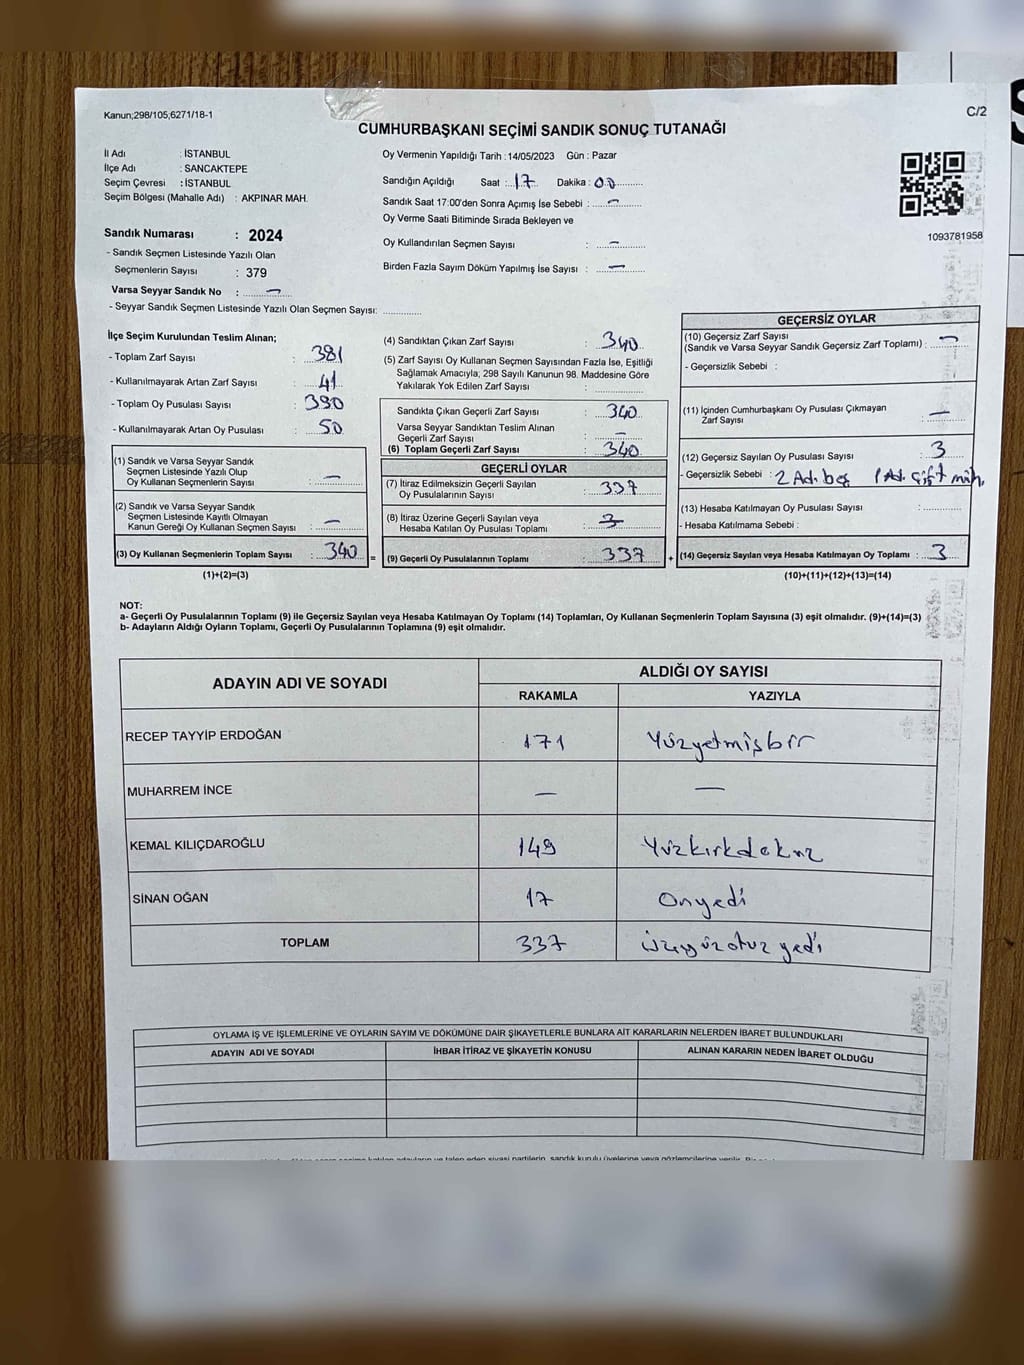 Kanun;298/105,6271/18-1
C/2
CUMHURBAŞKANI SEÇİMİ SANDIK SONUÇ TUTANAĞI
İl Adı : İSTANBUL
İlçe Adı : SANCAKTEPE
Seçim Çevresi : İSTANBUL
Seçim Bölgesi (Mahalle Adı) : AKPINAR MAH.
Sandık Numarası : 2024
- Sandık Seçmen Listesinde Yazılı Olan
Seçmenlerin Sayısı : 379
Varsa Seyyar Sandık No : —
- Seyyar Sandık Seçmen Listesinde Yazılı Olan Seçmen Sayısı:
Oy Vermenin Yapıldığı Tarih : 14/05/2023 Gün : Pazar
Sandığın Açıldığı Saat : 17 Dakika : 00
Sandık Saat 17:00'den Sonra Açımış İse Sebebi : —
Oy Verme Saati Bitiminde Sırada Bekleyen ve
Oy Kullandırılan Seçmen Sayısı : —
Birden Fazla Sayım Döküm Yapılmış İse Sayısı : —
1093781958
İlçe Seçim Kurulundan Teslim Alınan;
- Toplam Zarf Sayısı : 381
- Kullanılmayarak Artan Zarf Sayısı : 41
- Toplam Oy Pusulası Sayısı : 390
- Kullanılmayarak Artan Oy Pusulası : 50
(1) Sandık ve Varsa Seyyar Sandık
Seçmen Listesinde Yazılı Olup
Oy Kullanan Seçmenlerin Sayısı : —
(2) Sandık ve Varsa Seyyar Sandık
Seçmen Listesinde Kayıtlı Olmayan
Kanun Gereği Oy Kullanan Seçmen Sayısı : —
(3) Oy Kullanan Seçmenlerin Toplam Sayısı : 340 =
(1)+(2)=(3)
(4) Sandıktan Çıkan Zarf Sayısı : 340
(5) Zarf Sayısı Oy Kullanan Seçmen Sayısından Fazla İse, Eşitliği
Sağlamak Amacıyla; 298 Sayılı Kanunun 98. Maddesine Göre
Yakılarak Yok Edilen Zarf Sayısı :
Sandıkta Çıkan Geçerli Zarf Sayısı : 340
Varsa Seyyar Sandıktan Teslim Alınan
Geçerli Zarf Sayısı : —
(6) Toplam Geçerli Zarf Sayısı : 340
GEÇERLİ OYLAR
(7) İtiraz Edilmeksizin Geçerli Sayılan
Oy Pusulalarının Sayısı : 337
(8) İtiraz Üzerine Geçerli Sayılan veya
Hesaba Katılan Oy Pusulası Toplamı :
(9) Geçerli Oy Pusulalarının Toplamı : 337 +
GEÇERSİZ OYLAR
(10) Geçersiz Zarf Sayısı
(Sandık ve Varsa Seyyar Sandık Geçersiz Zarf Toplamı) : —
- Geçersizlik Sebebi :
(11) İçinden Cumhurbaşkanı Oy Pusulası Çıkmayan
Zarf Sayısı : —
(12) Geçersiz Sayılan Oy Pusulası Sayısı : 3
- Geçersizlik Sebebi : 2 Ad. boş 1 Ad. çift müh.
(13) Hesaba Katılmayan Oy Pusulası Sayısı :
- Hesaba Katılmama Sebebi :
(14) Geçersiz Sayılan veya Hesaba Katılmayan Oy Toplamı : 3
(10)+(11)+(12)+(13)=(14)
NOT:
a- Geçerli Oy Pusulalarının Toplamı (9) ile Geçersiz Sayılan veya Hesaba Katılmayan Oy Toplamı (14) Toplamları, Oy Kullanan Seçmenlerin Toplam Sayısına (3) eşit olmalıdır. (9)+(14)=(3)
b- Adayların Aldığı Oyların Toplamı, Geçerli Oy Pusulalarının Toplamına (9) eşit olmalıdır.
ADAYIN ADI VE SOYADI
ALDIĞI OY SAYISI
RAKAMLA YAZIYLA
RECEP TAYYİP ERDOĞAN 171 Yüzyetmişbir
MUHARREM İNCE — —
KEMAL KILIÇDAROĞLU 149 Yüzkırkdokuz
SİNAN OĞAN 17 Onyedi
TOPLAM 337 üçyüzotuz yedi
OYLAMA İŞ VE İŞLEMLERİNE VE OYLARIN SAYIM VE DÖKÜMÜNE DAİR ŞİKAYETLERLE BUNLARA AİT KARARLARIN NELERDEN İBARET BULUNDUKLARI
ADAYIN ADI VE SOYADI İHBAR İTİRAZ VE ŞİKAYETİN KONUSU ALINAN KARARIN NEDEN İBARET OLDUĞU